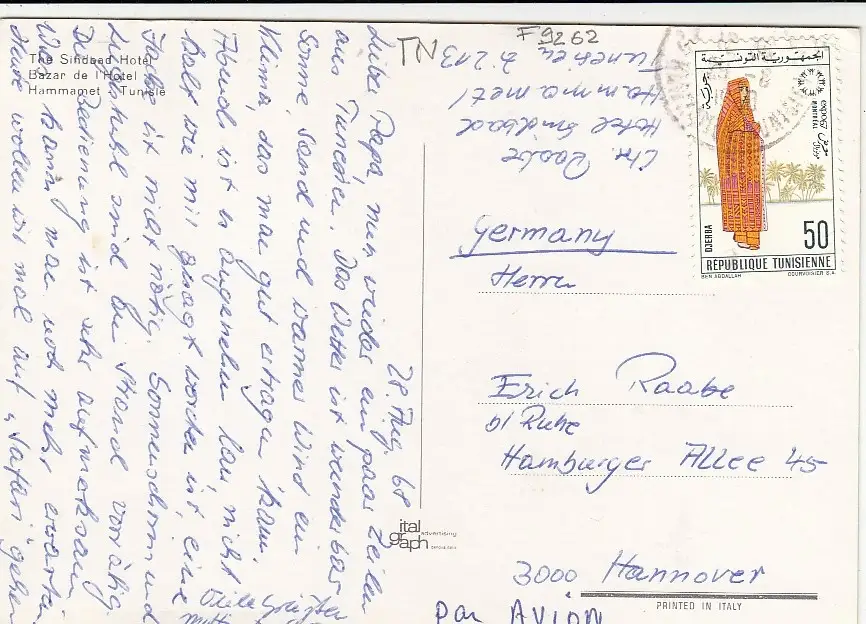 The Sindbad Hotel
Bazar de l'Hotel
Hammamet - Tunisie
28. Aug. 68
Lieber Papa, nun wieder ein paar Zeilen
aus Tunesien. Das Wetter ist wunderbar
Sonne Sand und warmer Wind ein
Klima, das man gut ertragen kann.
Abends ist es angenehm lau, nicht
kalt wie mir gesagt worden ist, eine
Jacke ist nicht nötig. Sonnenschirm und
sind am Strand vorrätig.
Die Bedienung ist sehr aufmerksam
Was kann man noch mehr erwarten
Heute wollen wir mal auf "Safari" gehen
Viele Grüße
TN
F9262
Chr. Raabe
Hotel Sindbad
Hammamet /
Tunesien Z. 213
الجمهورية التونسية
expo67
MONTREAL
DJERBA
50
RÉPUBLIQUE TUNISIENNE
BEN ABDALLAH
COURVOISIER S.A.
Germany
Herrn
Erich Raabe
b/ Ruhe
Hamburger Allee 45
3000 Hannover
Par AVION
ital
graph
advertising
PRINTED IN ITALY